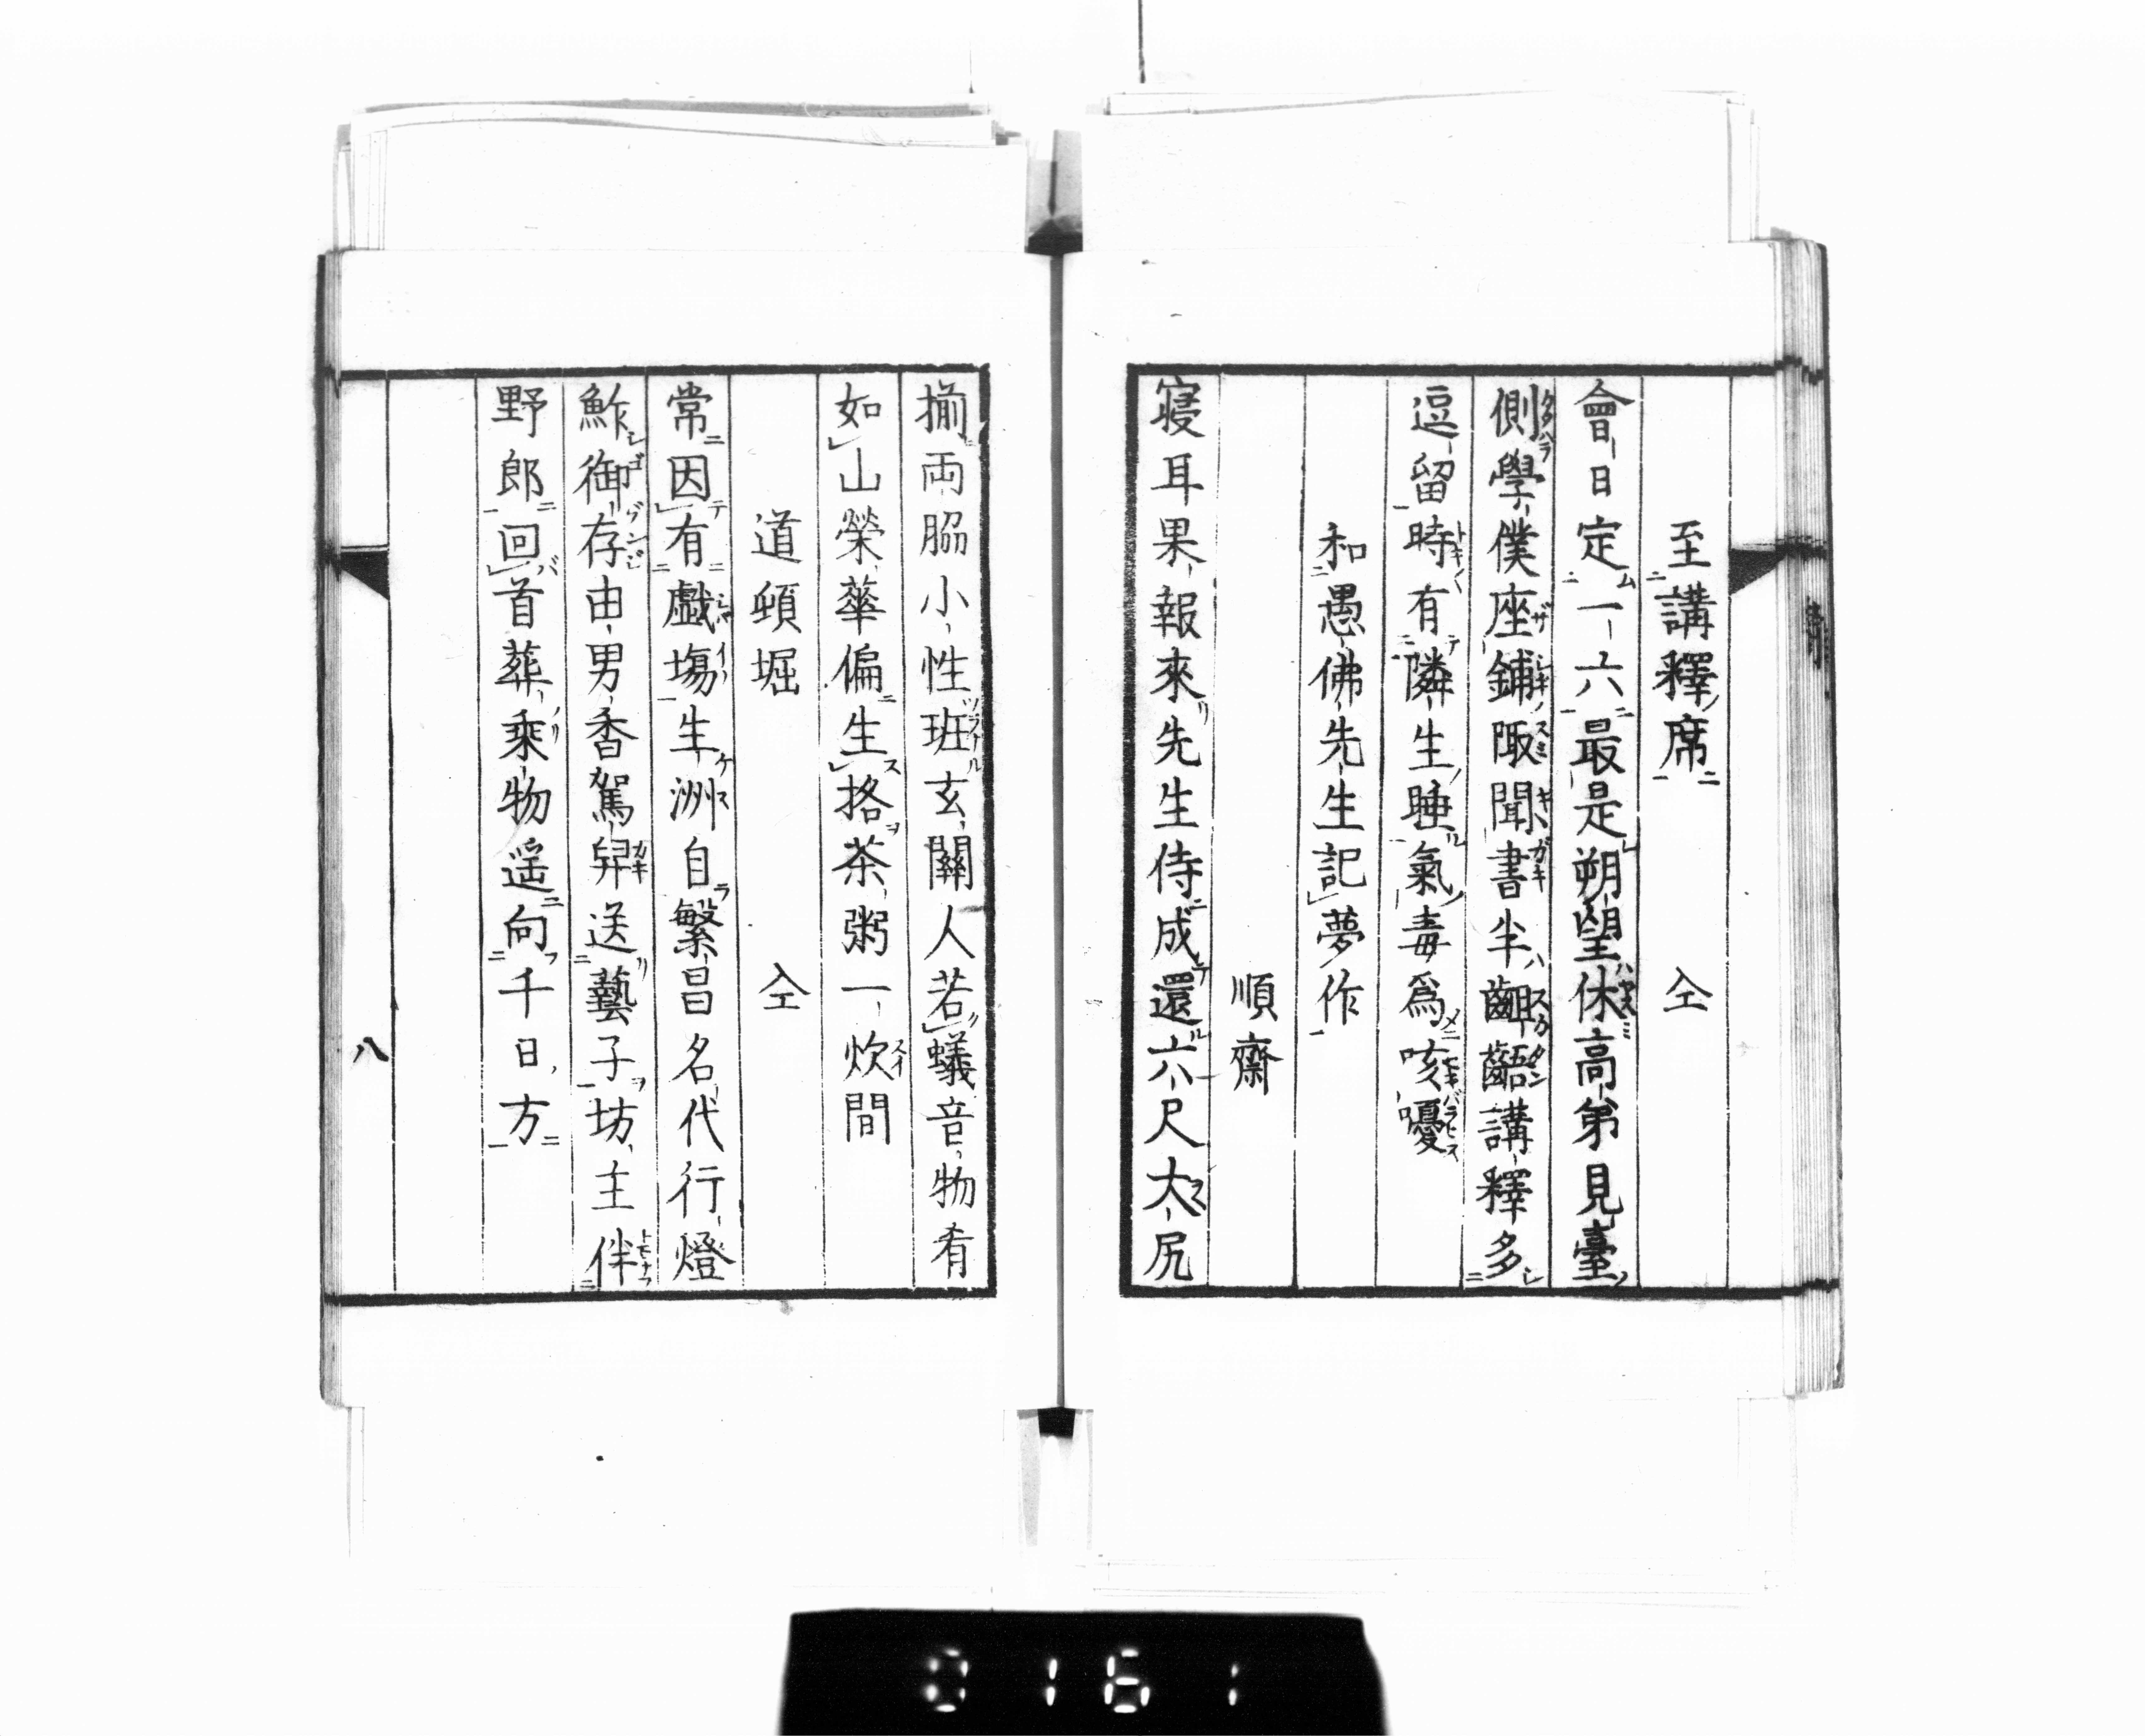 至講釋席　仝
會日定一六最是朔望休高弟見臺
側學僕座鋪陬聞書半齟齬講釋多
逗留時有隣生睡氣毒爲咳嚘
和愚佛先生記夢作
順齋
寝耳果報來先生侍成還六尺大尻
揃両脇小性班玄關人若蟻音物肴
如山榮華偏生挌茶粥一炊間
道頓堀　仝
常因有戯塲生洲自繁昌名代行燈
鮓御存由男香駕舁送藝子坊主伴
野郎回首葬乘物遥向千日方
八
0161